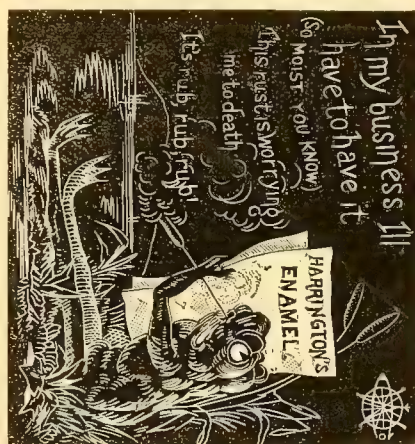 In my business I'll
have to have it
(SO MOIST YOU KNOW)
This rust is worrying
me to death
It's rub, rub, rub!
HARRINGTON'S
ENAMEL